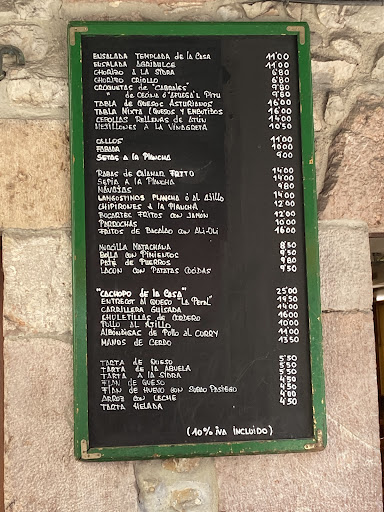 ENSALADA TEMPLADA DE LA CASA 11'00
ENSALADA AGRIDULCE 11'00
CHORIZO A LA SIDRA 6'80
CHORIZO CRIOLLO 6'80
CROQUETAS DE "CABRALES" 9'80
" DE CECINA Ó "AFUEGA'L PITU 9'80
TABLA DE QUESOS ASTURIANOS 16'00
TABLA MIXTA (QUESOS Y EMBUTIDOS 16'00
CEBOLLAS RELLENAS DE ATÚN 14'00
MEJILLONES A LA VINAGRETA 10'50
CALLOS 11'00
FABADA 10'00
SETAS A LA PLANCHA 9'00
RABAS DE CALAMAR FRITO 14'00
SEPIA A LA PLANCHA 14'00
NAVAJAS 9'80
LANGOSTINOS PLANCHA Ó AL AJILLO 14'00
CHIPIRONES A LA PLANCHA 12'00
BOCARTES FRITOS CON JAMÓN 12'00
PARROCHAS 10'00
FRITOS DE BACALAO CON ALI-OLI 16'00
MORCILLA MATACHANA 8'50
BOLLA CON PIMIENTOS 9'50
PATÉ DE PUERROS 9'80
LACON CON PATATAS COCIDAS 9'50
"CACHOPO DE LA CASA" 25'00
ENTRECOT AL QUESO "LA PERAL" 19'50
CARRILLERA GUISADA 14'00
CHULETILLAS DE CORDERO 16'00
POLLO AL AJILLO 10'00
ALBÓNDIGAS DE POLLO AL CURRY 11'00
MANOS DE CERDO 13'50
TARTA DE QUESO 5'50
TARTA DE LA ABUELA 5'50
TARTA A LA SIDRA 5'50
FLAN DE QUESO 4'50
FLAN DE HUEVO CON SOBAO PASIEGO 4'50
ARROZ CON LECHE 4'00
TARTA HELADA 4'50
(10% IVA INCLUIDO)